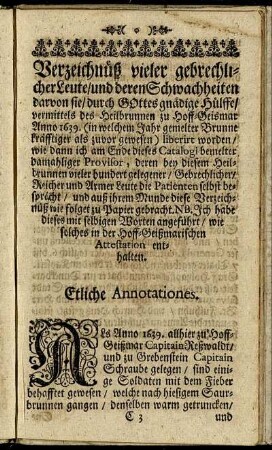 Verzeichnüß vieler gebrechli-
cher Leute/und deren Schwachheiten
darvon sie/durch GOttes gnädige Hülffe/
vermittels des Heilbrunnen zu Hoff-Geismar
Anno 1639. (in welchem Jahr gemelter Brunne
kräfftiger als zuvor gewesen) liberirt worden/
wie dann ich am Ende dieses Catalogi benelter
damahliger Provisor, deren bey diesem Heil-
brunnen vieler hundert gelegener/Gebrechlicher/
Reicher und Armer Leute die Patienten selbst be-
sprächt/und auß ihrem Munde diese Verzeich-
nüß wie folget zu Papier gebracht. NB. Ich habe
dieses mit selbigen Worten angeführt/wie
solches in der Hoff-Geißmarischen
Attestation ent-
halten.
Etliche Annotationes.
ALs Anno 1639. allhier zu Hoff-
Geißmar Capitain Reßwaldt/
und zu Grebenstein Capitain
Schraube gelegen/sind eini-
ge Soldaten mit dem Fieber
behafftet gewesen/welche nach hiesigem Saur-
brunnen gangen/denselben warm getruncken/
C 3 und